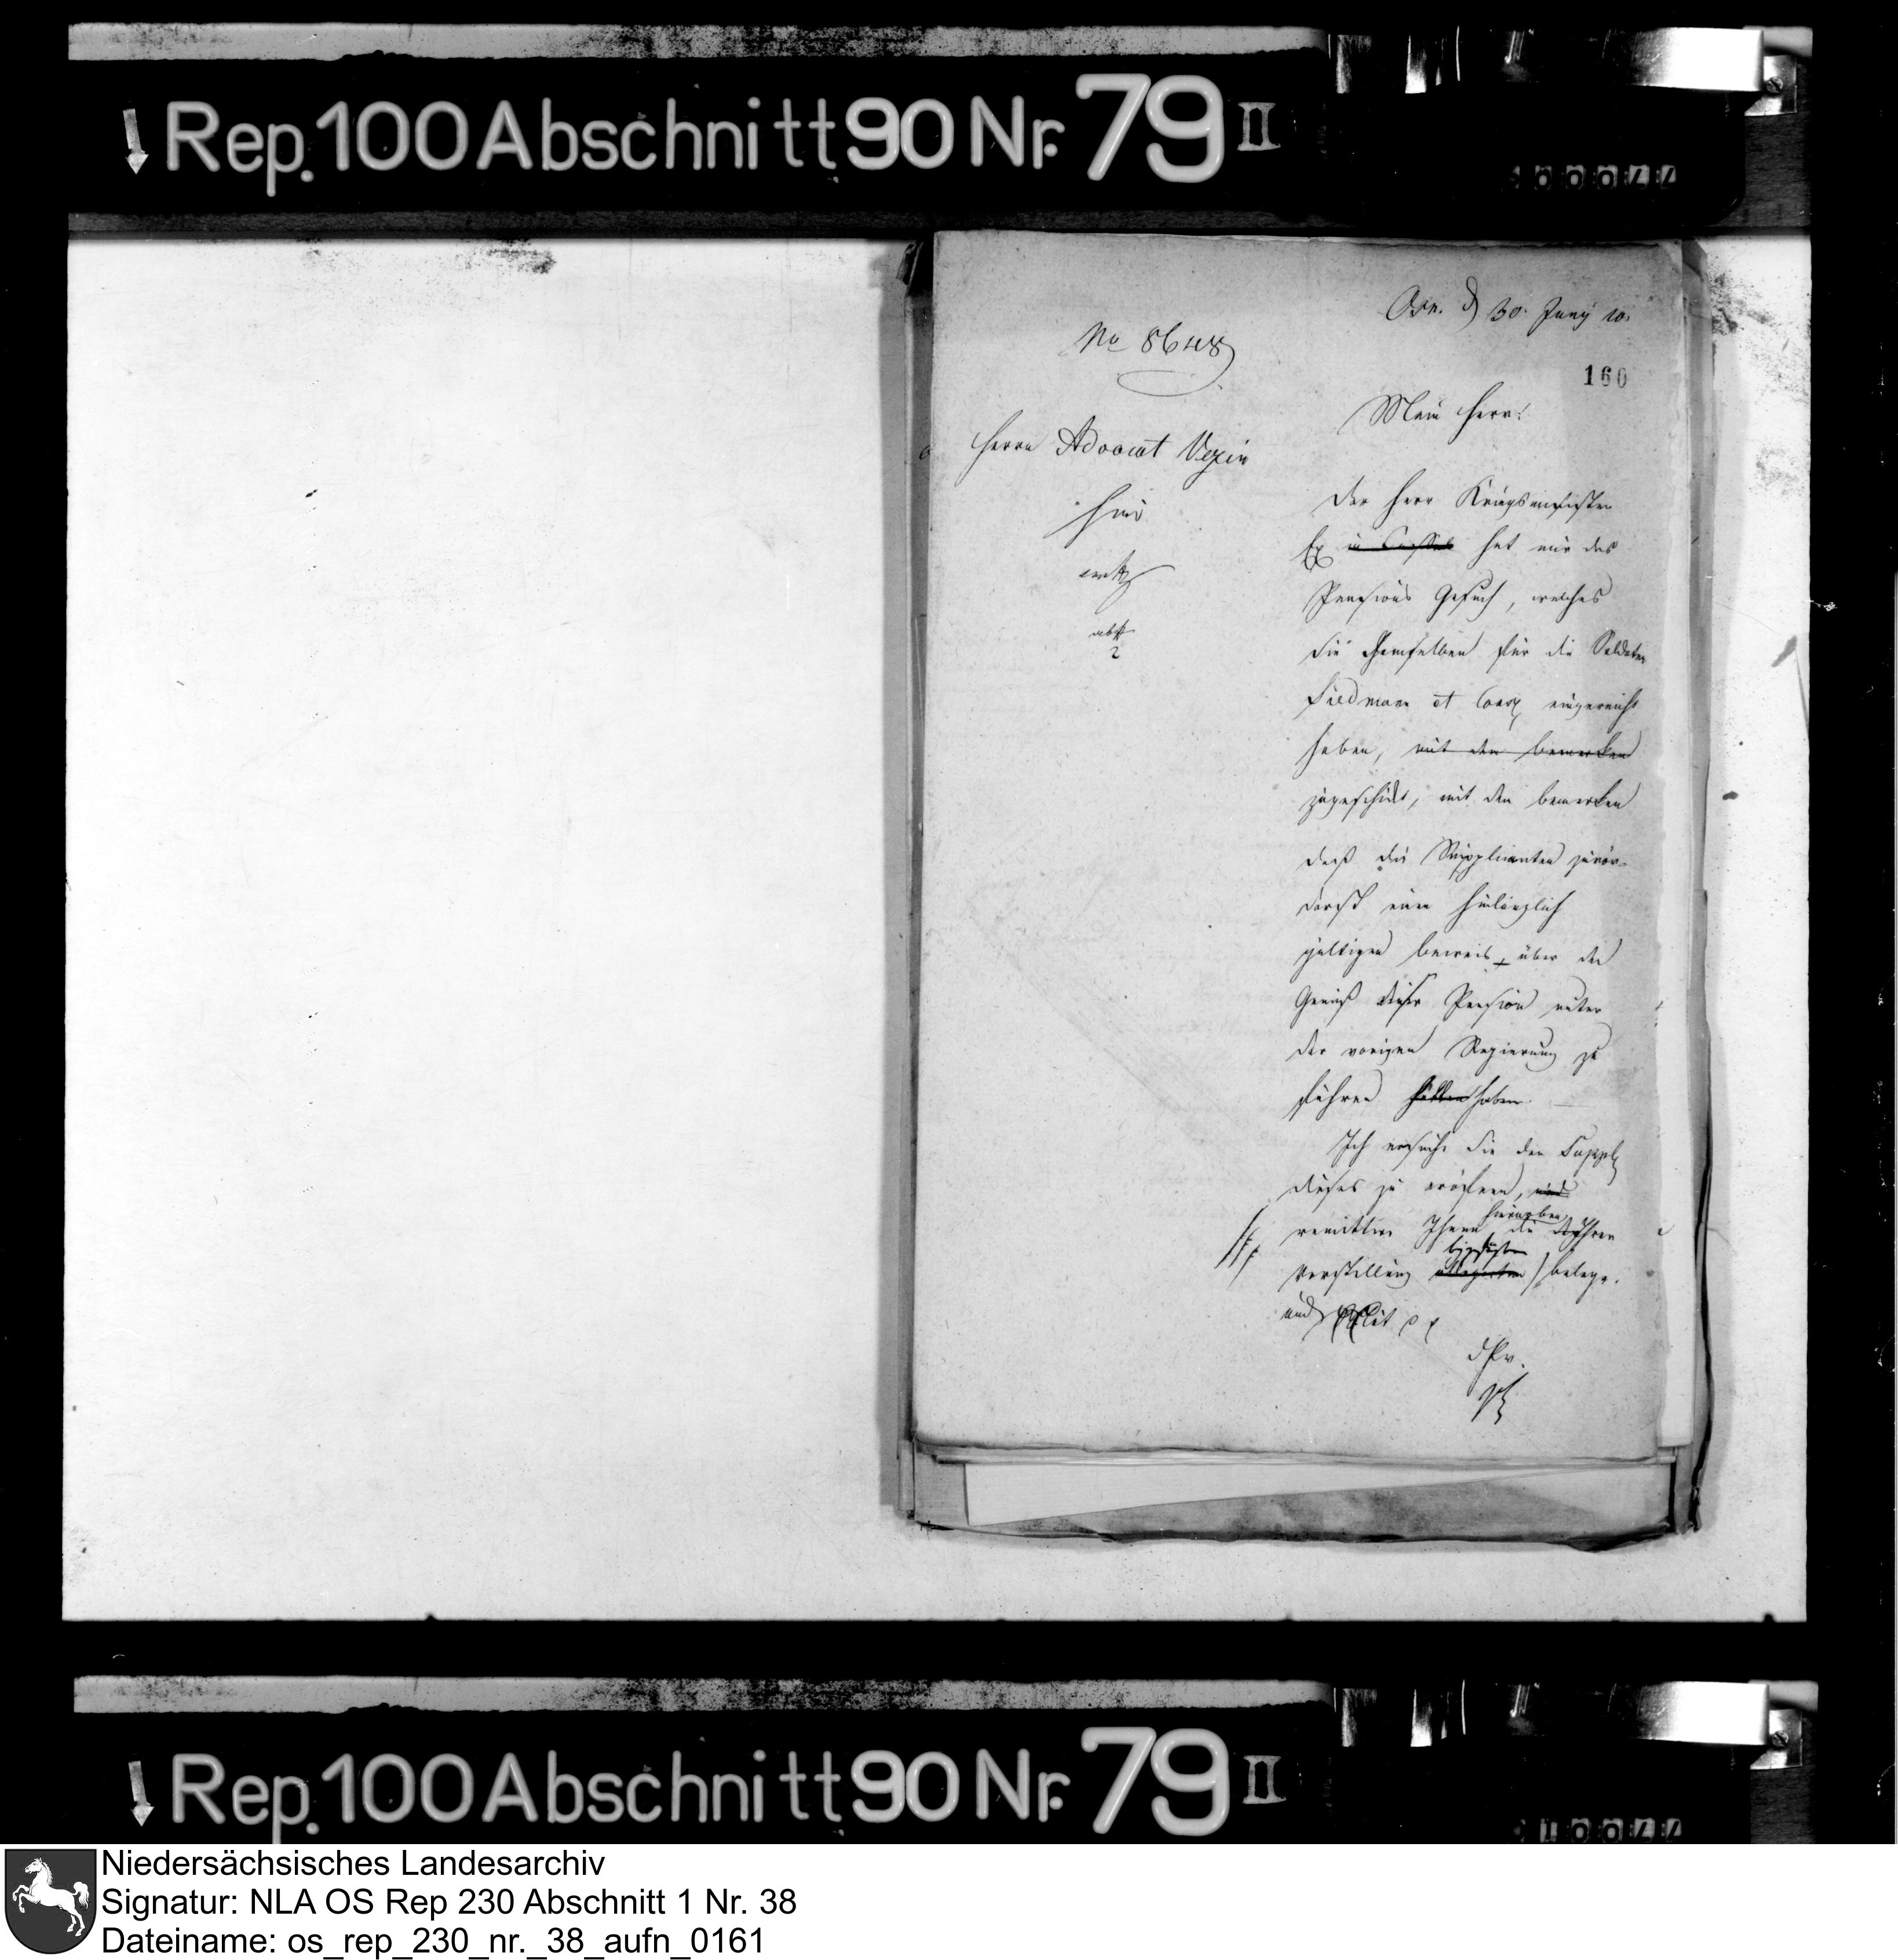 Rep. 100 Abschnitt 90 Nr. 79 II
Osn. d 30. Juny 10.
No 8648
160
Mein Herr!
Herrn Advocat Vezin
hier
Der Herr Kriegsminister
Ex in Cassel hat mir das
Pensions Gesuch, welches
Sie demselben für die Soldaten
Siedmann et Cons. eingereicht
haben, mit dem bemerken
zugeschickt, mit dem bemerken
daß die Supplicanten zuvör-
derst einen hinlänglich
gültigen beweis über den
Genuß dieser Pension unter
der vorigen Regierung zu
führen hätten haben
Ich ersuche Sie den Suppl
dieses zu eröfnen, und
hieneben
remittire Ihnen die Ihrer
Vorstellung belege.
und
Rep. 100 Abschnitt 90 Nr. 79 II
Niedersächsisches Landesarchiv
Signatur: NLA OS Rep 230 Abschnitt 1 Nr. 38
Dateiname: os_rep_230_nr._38_aufn_0161